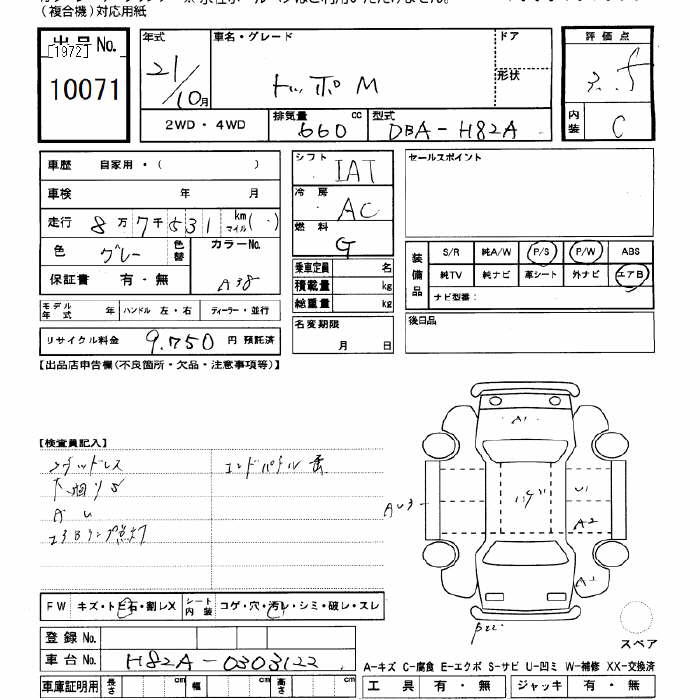 (複合機)対応用紙
出品No.
[1972]
10071
年式
21/10月
車名・グレード
トッポ M
ドア
形状
評価点
3.5
内装
C
2WD・4WD
排気量 660 cc
型式 DBA-H82A
車歴 自家用・( )
車検 年 月
走行 8万7千531 km マイル(・)
色 グレー 色替
カラーNo. A38
保証書 有・無
モデル年式 年 ハンドル 左・右 ディーラー・並行
リサイクル料金 9.750 円 預託済
シフト IAT
冷房 AC
燃料 G
乗車定員 名
積載量 kg
総重量 kg
名変期限
月 日
セールスポイント
装備品
S/R 純A/W P/S P/W ABS
純TV 純ナビ 革シート 外ナビ エアB
ナビ型番:
後日品
【出品店申告欄(不良箇所・欠品・注意事項等)】
【検査員記入】
AU
A1
U1
A2
AU3
スペア
FW キズ・トビ石・割レX シート内装 コゲ・穴・汚レ・シミ・破レ・スレ
登録No.
車台No. H82A-0303122
車庫証明用 長さ cm 幅 cm 高さ cm
A-キズ C-腐食 E-エクボ S-サビ U-凹ミ W-補修 XX-交換済
工具 有・無 ジャッキ 有・無